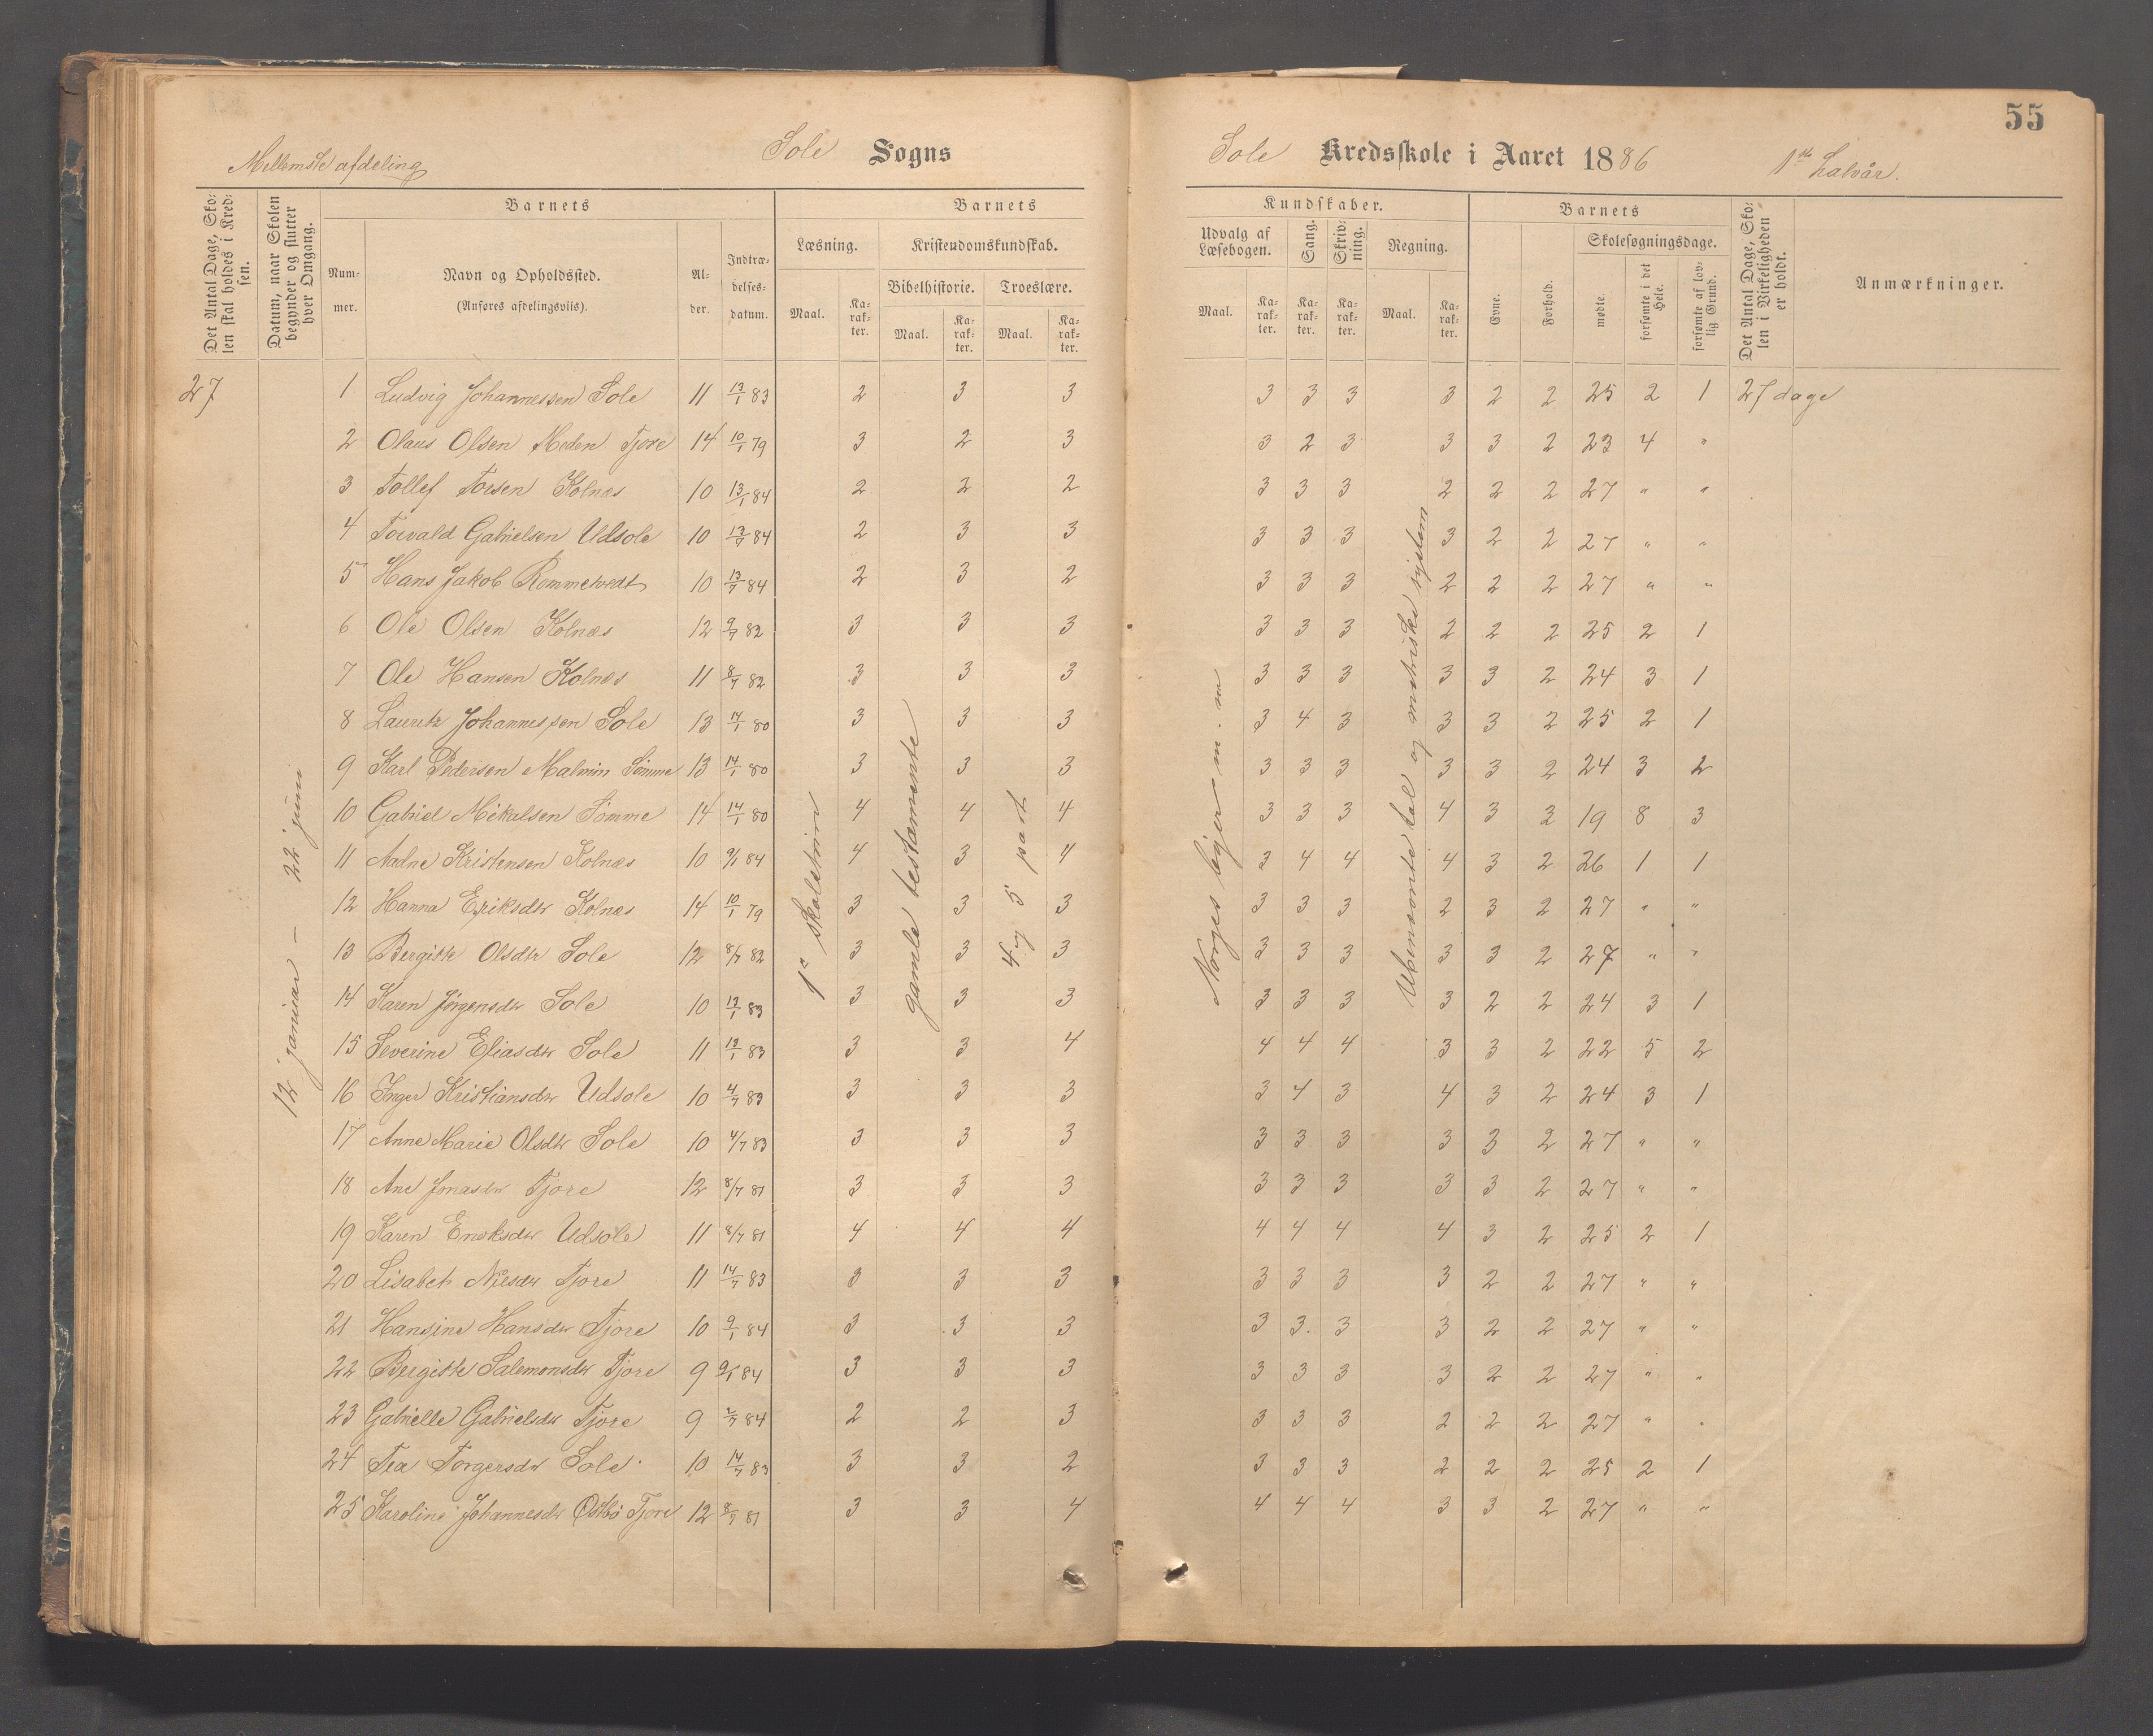 55
Mellemste afdeling Sole Sogns Sole Kredsskole i Aaret 1886 1ste halvår.
Det Antal Dage, Skolen skal holdes i Kredsen.
Datum, naar Skolen begynder og slutter hver Omgang.
Barnets
Nummer.
Navn og Opholdssted.
(Anføres afdelingsviis).
Alder.
Indtrædelsesdatum.
Barnets
Læsning.
Maal.
Karakter.
Kristendomskundskab.
Bibelhistorie.
Maal.
Karakter.
Troeslære.
Maal.
Karakter.
Kundskaber.
Udvalg af Læsebogen.
Maal.
Karakter.
Sang.
Karakter.
Skrivning.
Karakter.
Regning.
Maal.
Karakter.
Barnets
Evne.
Forhold.
Skolesøgningsdage.
mødte.
forsømte i det Hele.
forsømte af lovlig Grund.
Det Antal Dage, Skolen i Virkeligheden er holdt.
Anmærkninger.
27 1 Ludvig Johannessen Sole 11 13/1 83 2 3 3 3 3 3 3 2 2 25 2 1 27 dage
2 Olaus Olsen Meden Tjore 14 10/1 79 3 2 3 3 2 3 3 3 2 23 4 "
3 Tollef Torsen Kolnæs 10 13/1 84 2 2 2 3 3 3 2 2 2 27 " "
4 Torvald Gabrielsen Udsole 10 13/7 84 2 3 3 3 3 3 3 2 2 27 " "
5 Hans Jakob Rommetvedt 10 13/7 84 2 3 2 3 3 3 2 2 2 27 " "
6 Ole Olsen Kolnæs 12 9/7 82 3 3 3 3 3 3 2 2 2 25 2 1
7 Ole Hansen Kolnæs 11 8/7 82 3 3 3 3 3 3 3 3 2 24 3 1
8 Lauritz Johannessen Sole 13 14/1 80 3 3 3 3 4 3 3 3 2 25 2 1
9 Karl Pedersen Malmin Sømme 13 14/1 80 3 3 3 3 3 3 3 3 2 24 3 2
10 Gabriel Mikalsen Sømme 14 14/1 80 4 4 4 3 3 3 4 3 2 19 8 3
11 Aadne Kristensen Kolnæs 10 9/1 84 4 3 4 3 4 4 4 3 2 26 1 1
12 Hanna Eriksdtr Kolnæs 14 10/1 79 3 3 3 3 3 3 2 3 2 27 " "
13 Bergitte Olsdtr Sole 12 8/7 82 3 3 3 3 3 3 3 3 2 27 " "
14 Karen Jørgensdtr Sole 10 13/1 83 3 3 3 3 3 3 3 2 2 24 3 1
15 Severine Eliasdtr Sole 11 13/1 83 3 3 4 4 4 4 3 3 2 22 5 2
16 Inger Kristiansdtr Udsole 10 4/7 83 3 3 3 3 4 3 4 3 2 24 3 1
17 Anne Marie Olsdtr Sole 10 4/7 83 3 3 3 3 3 3 3 3 2 27 " "
18 Ane Jonasdtr Tjore 12 8/7 81 3 3 3 3 3 3 3 3 2 27 " "
19 Karen Enoksdtr Udsole 11 8/7 81 4 4 4 4 4 4 4 3 2 25 2 1
20 Lisabet Nilsdtr Tjore 11 14/7 83 3 3 3 3 3 3 3 2 2 27 " "
21 Hansine Hansdtr Tjore 10 9/1 84 3 3 3 3 3 3 3 2 2 27 " "
22 Bergitte Salemonsdtr Tjore 9 9/1 84 3 3 3 3 3 3 3 2 2 27 " "
23 Gabrielle Gabrielsdtr Tjore 9 2/7 84 2 2 3 3 3 3 2 2 2 27 " "
24 Tea Torgersdtr Sole 10 14/7 83 3 3 2 3 3 3 2 2 2 25 2 1
25 Karoline Johannesdtr Østbø Tjore 12 8/7 81 3 3 4 4 4 4 3 3 2 27 " "
12 januar – 22 juni
1e skoletrin
gamle testamente
4 og 5 part
Norges løger m. m
Ubenævnte tal og metriske system